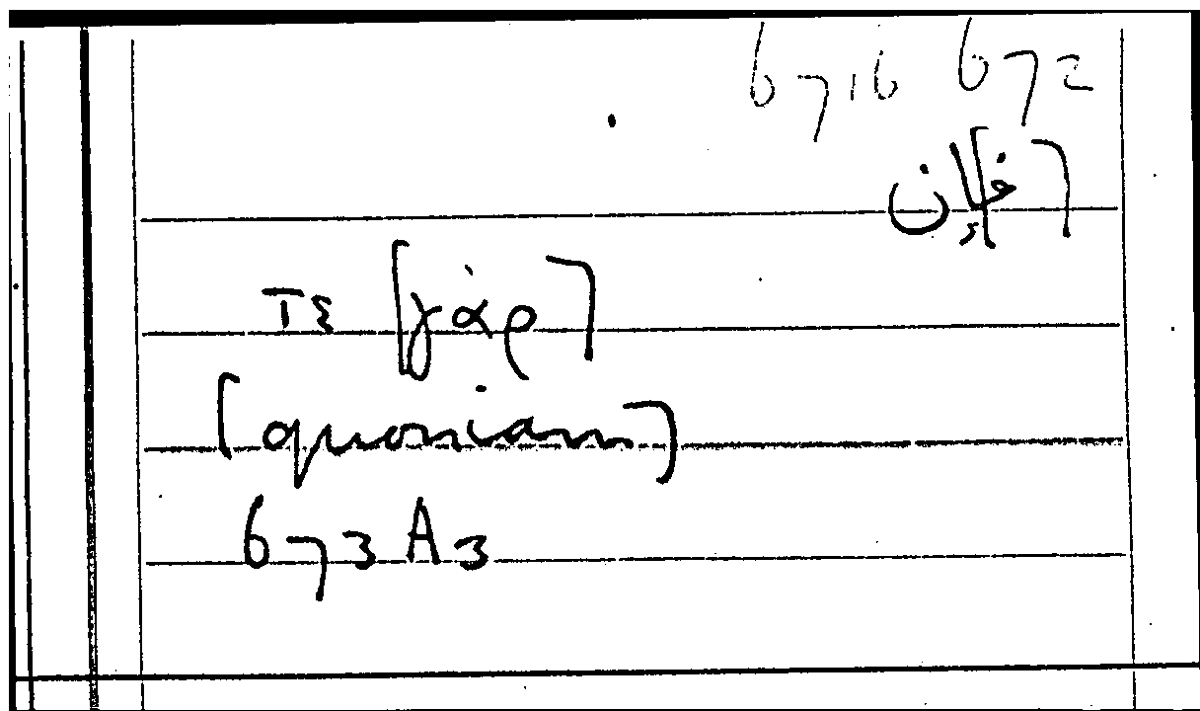 6716 672
[ف]إن
τε [γὰρ]
[quoniam]
673 A3